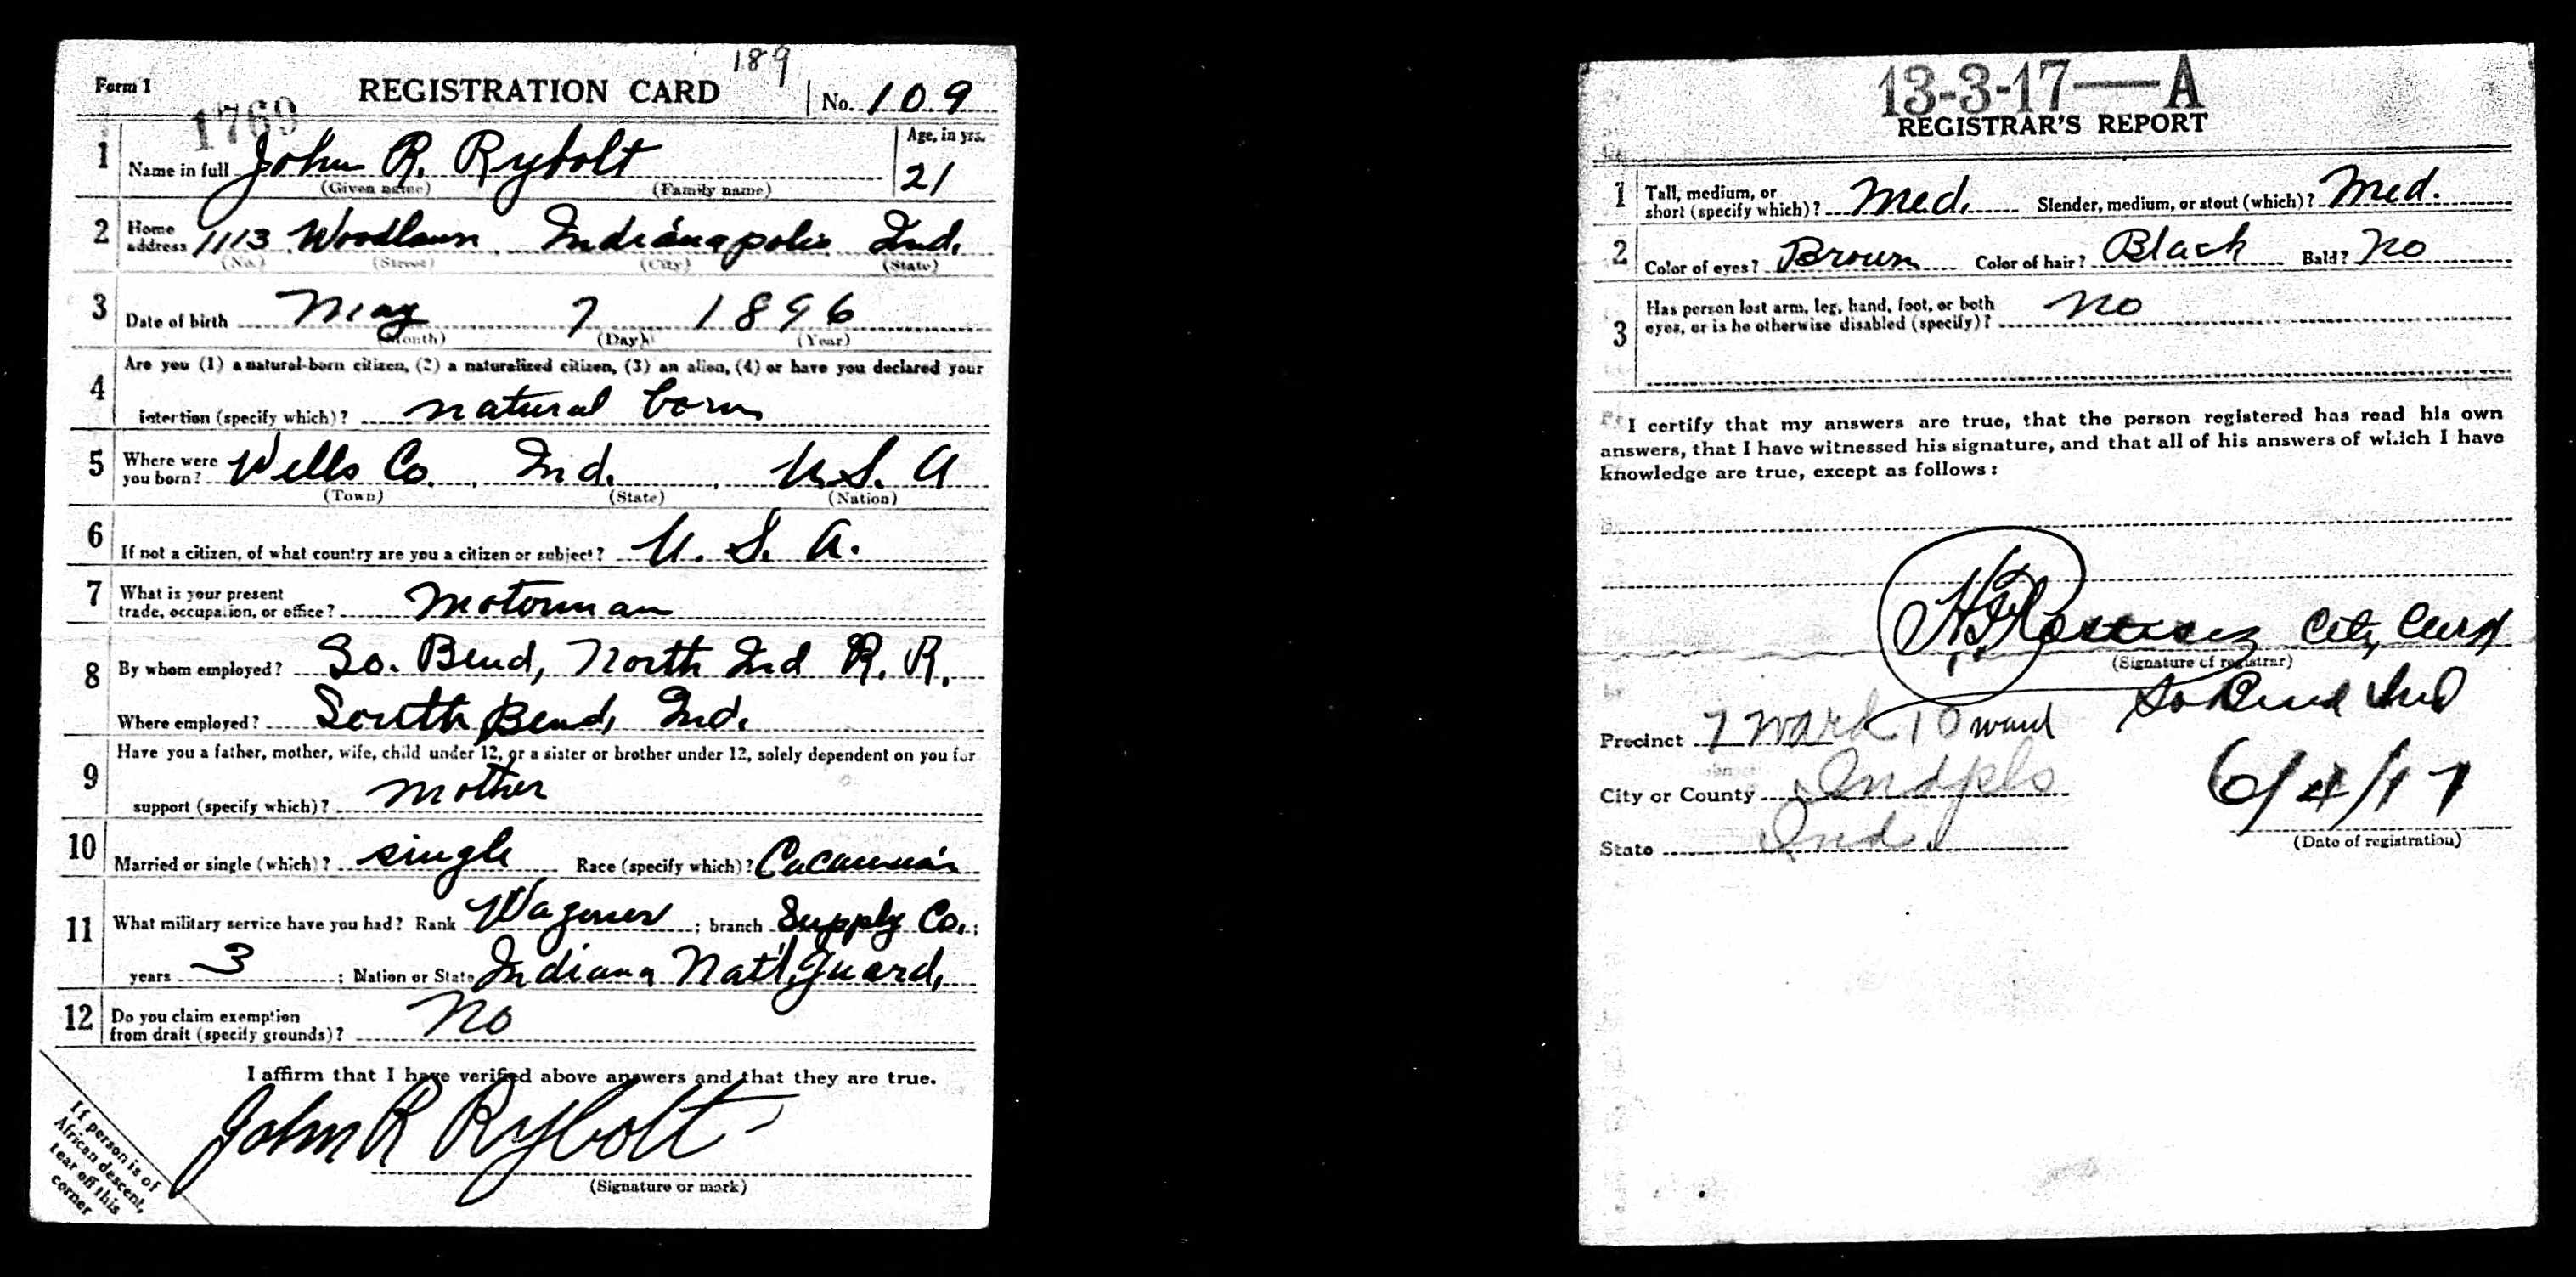 189
Form 1 REGISTRATION CARD No. 109
1769
1 Name in full John R. Rybolt Age, in yrs. 21
(Given name) (Family name)
2 Home address 1113 Woodlawn Indianapolis Ind.
(No.) (Street) (City) (State)
3 Date of birth May 7 1896
(Month) (Day) (Year)
4 Are you (1) a natural-born citizen, (2) a naturalized citizen, (3) an alien, (4) or have you declared your
intention (specify which)? natural born
5 Where were you born? Wells Co. Ind. U.S.A
(Town) (State) (Nation)
6 If not a citizen, of what country are you a citizen or subject? U. S. A.
7 What is your present trade, occupation, or office? Motorman
8 By whom employed? So. Bend, North Ind R. R.
Where employed? South Bend, Ind.
9 Have you a father, mother, wife, child under 12, or a sister or brother under 12, solely dependent on you for
support (specify which)? Mother
10 Married or single (which)? single Race (specify which)?
11 What military service have you had? Rank Wagoner ; branch Supply Co. ;
years 3 ; Nation or State Indiana Nat'l. Guard,
12 Do you claim exemption from draft (specify grounds)? No
I affirm that I have verified above answers and that they are true.
John R Rybolt
(Signature or mark)
If person is of African descent, tear off this corner
13-3-17—A
REGISTRAR'S REPORT
1 Tall, medium, or short (specify which)? Med. Slender, medium, or stout (which)? Med.
2 Color of eyes? Brown Color of hair? Black Bald? No
3 Has person lost arm, leg, hand, foot, or both eyes, or is he otherwise disabled (specify)? No
I certify that my answers are true, that the person registered has read his own
answers, that I have witnessed his signature, and that all of his answers of which I have
knowledge are true, except as follows:
City Clerk
(Signature of registrar)
So Bend Ind
Precinct 7 10 ward
City or County Indpls
6/4/17
State Ind.
(Date of registration)